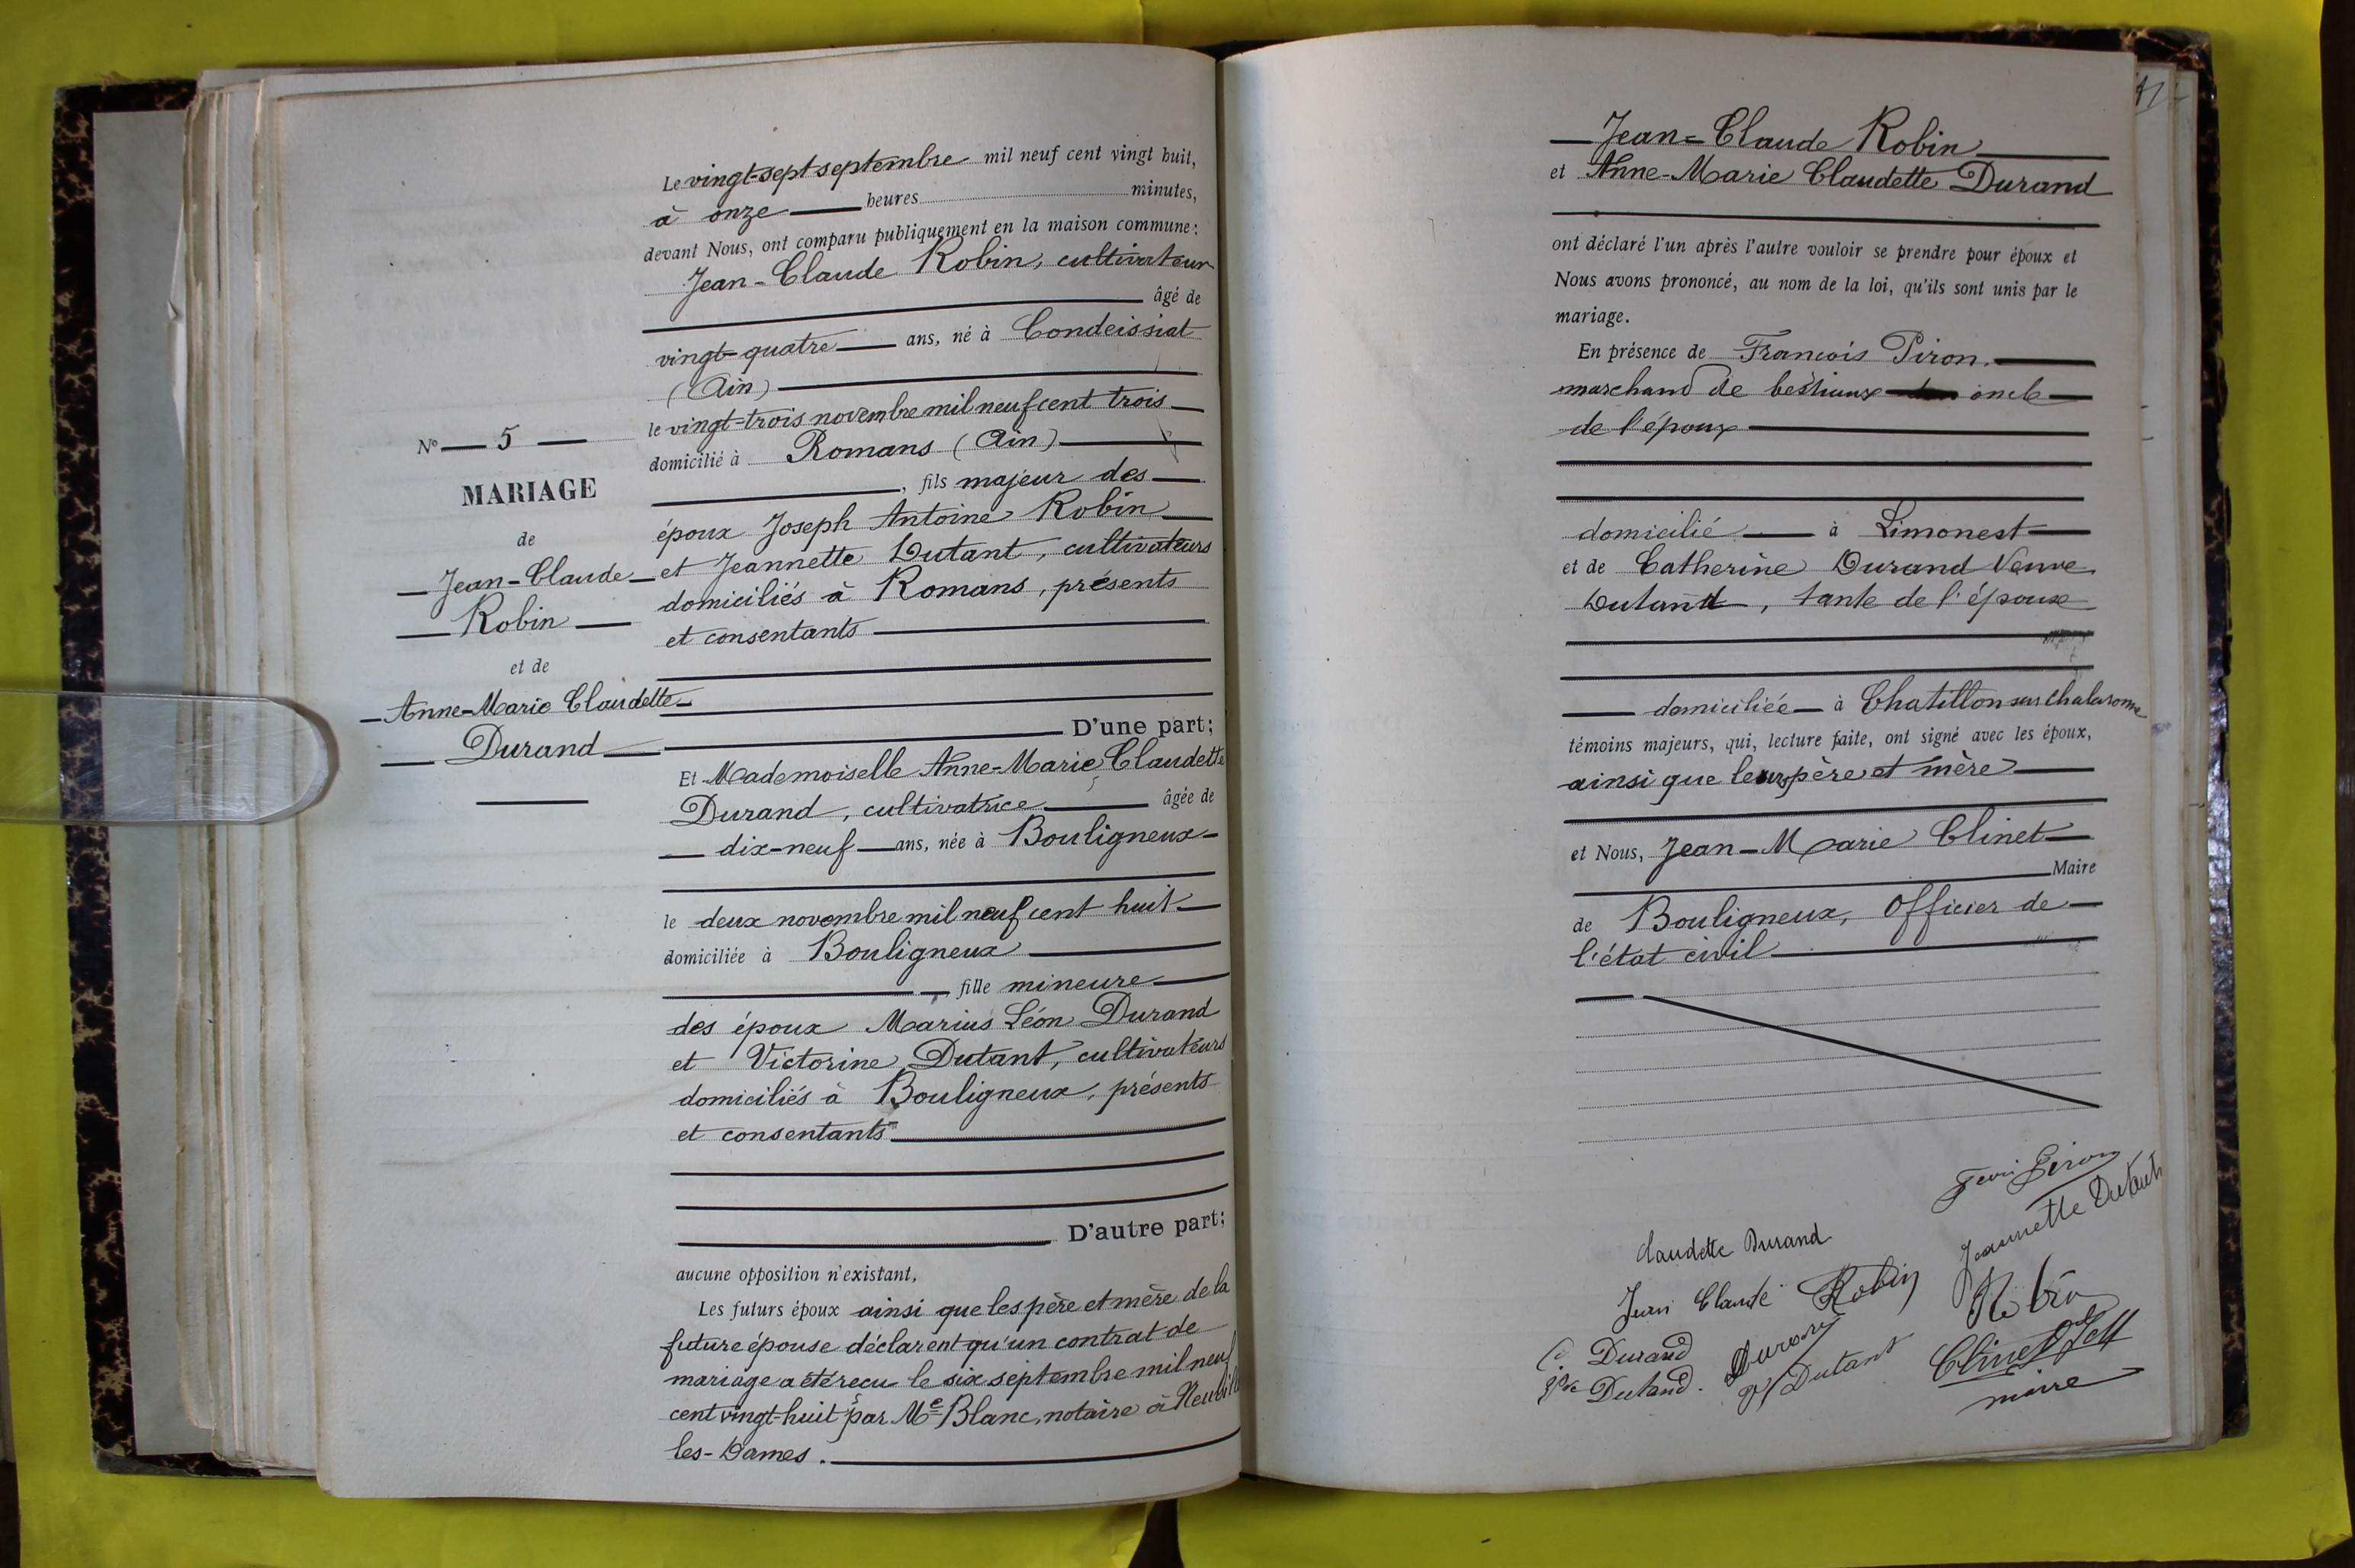 N° 5
MARIAGE
de
Jean-Claude
Robin
et de
Anne-Marie Claudette
Durand
Le vingt-sept septembre mil neuf cent vingt huit,
à onze heures minutes,
devant Nous, ont comparu publiquement en la maison commune:
Jean-Claude Robin, cultivateur
âgé de
vingt-quatre ans, né à Condeissiat
(Ain)
le vingt-trois novembre mil neuf cent trois
domicilié à Romans (Ain)
, fils majeur des
époux Joseph Antoine Robin
et Jeannette Dutant, cultivateurs
domiciliés à Romans, présents
et consentants
D'une part;
Et Mademoiselle Anne-Marie Claudette
Durand, cultivatrice âgée de
dix-neuf ans, née à Bouligneux
le deux novembre mil neuf cent huit
domiciliée à Bouligneux
, fille mineure
des époux Marius Léon Durand
et Victorine Dutant, cultivateurs
domiciliés à Bouligneux, présents
et consentants
D'autre part;
aucune opposition n'existant,
Les futurs époux ainsi que les père et mère de la
future épouse déclarent qu'un contrat de
mariage a été reçu le six septembre mil neuf
cent vingt-huit par Me Blanc, notaire à Neuville
les-Dames.
Jean-Claude Robin
et Anne-Marie Claudette Durand
ont déclaré l'un après l'autre vouloir se prendre pour époux et
Nous avons prononcé, au nom de la loi, qu'ils sont unis par le
mariage.
En présence de François Piron.
marchand de bestiaux oncle
de l'époux
domicilié à Limonest
et de Catherine Durand Veuve
Dutand, tante de l'épouse
domiciliée à Chatillon sur Chalaronne
témoins majeurs, qui, lecture faite, ont signé avec les époux,
ainsi que leurs père et mère
et Nous, Jean-Marie Clinet
Maire
de Bouligneux, Officier de
l'état civil
Piron
Claudette Durand
Jeannette Dutant
Jean Claude Robin
Robin
C. Durand
Vve Dutand.
Durand
V Dutant
Clinet
maire